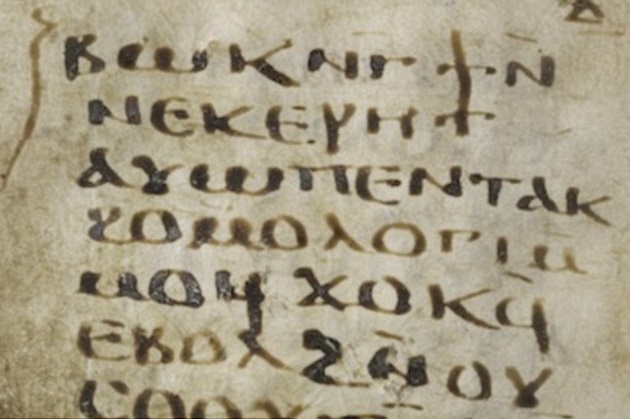 ⲃⲱⲕⲛ̄ⲅϯⲛ̄
ⲛⲉⲕⲉⲣⲏⲧ
ⲁⲩⲱⲡⲉⲛⲧⲁⲕ
ϩⲟⲙⲟⲗⲟⲅⲓⲙ̄
ⲙⲟϥϫⲟⲕϥ̄
ⲉⲃⲟⲗϩⲛ̄ⲟⲩ